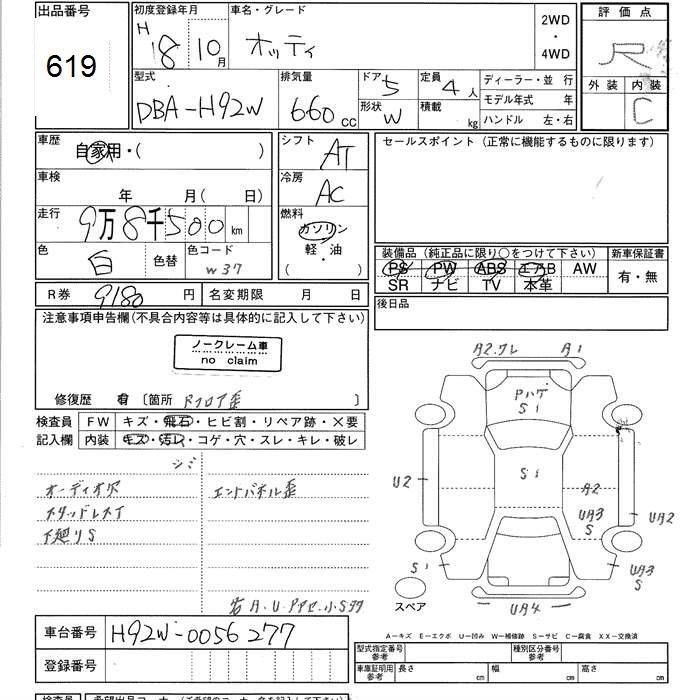 出品番号
619
初度登録年月
H 18 10月
車名・グレード
オッティ
2WD
・
4WD
評価点
R
外装 内装
C
型式
DBA-H92W
排気量
660 cc
ドア 5
形状 W
定員 4人
積載 kg
ディーラー・並行
モデル年式 年
ハンドル 左・右
車歴
自家用・( )
車検
年 月( 日)
走行
9万8千500 km
色
白 色替
色コード
W37
シフト
AT
冷房
AC
燃料
ガソリン
軽・油
( )
セールスポイント(正常に機能するものに限ります)
装備品(純正品に限り○をつけて下さい)
PS PW ABS エアB AW
SR ナビ TV 本革
新車保証書
有・無
R券 9180 円
名変期限 月 日
後日品
注意事項申告欄(不具合内容等は具体的に記入して下さい)
ノークレーム車
no claim
修復歴 有 〔箇所 Rフロア歪
検査員
記入欄
FW キズ・飛石・ヒビ割・リペア跡・×要
内装 キズ・汚レ・コゲ・穴・スレ・キレ・破レ
シミ
オーディオ穴
スタッドレス
下廻りS
エンドパネル歪
A2.ワレ A1
Pハゲ
S1
S1
U2
A2
UA3
S
UA2
S1
UA3
S
UA4
スペア
A-キズ E-エクボ U-凹み W-補修跡 S-サビ C-腐食 XX-交換済
車台番号 H92W-0056277
登録番号
型式指定番号
参考
種別区分番号
参考
車庫証明用
参考
長さ cm 幅 cm 高さ cm